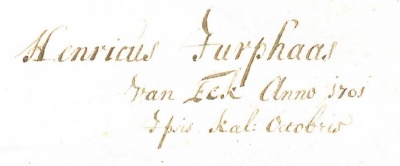 Henricus Jurphaas
Van Eck Anno 1701
Ipis kal: Octobris